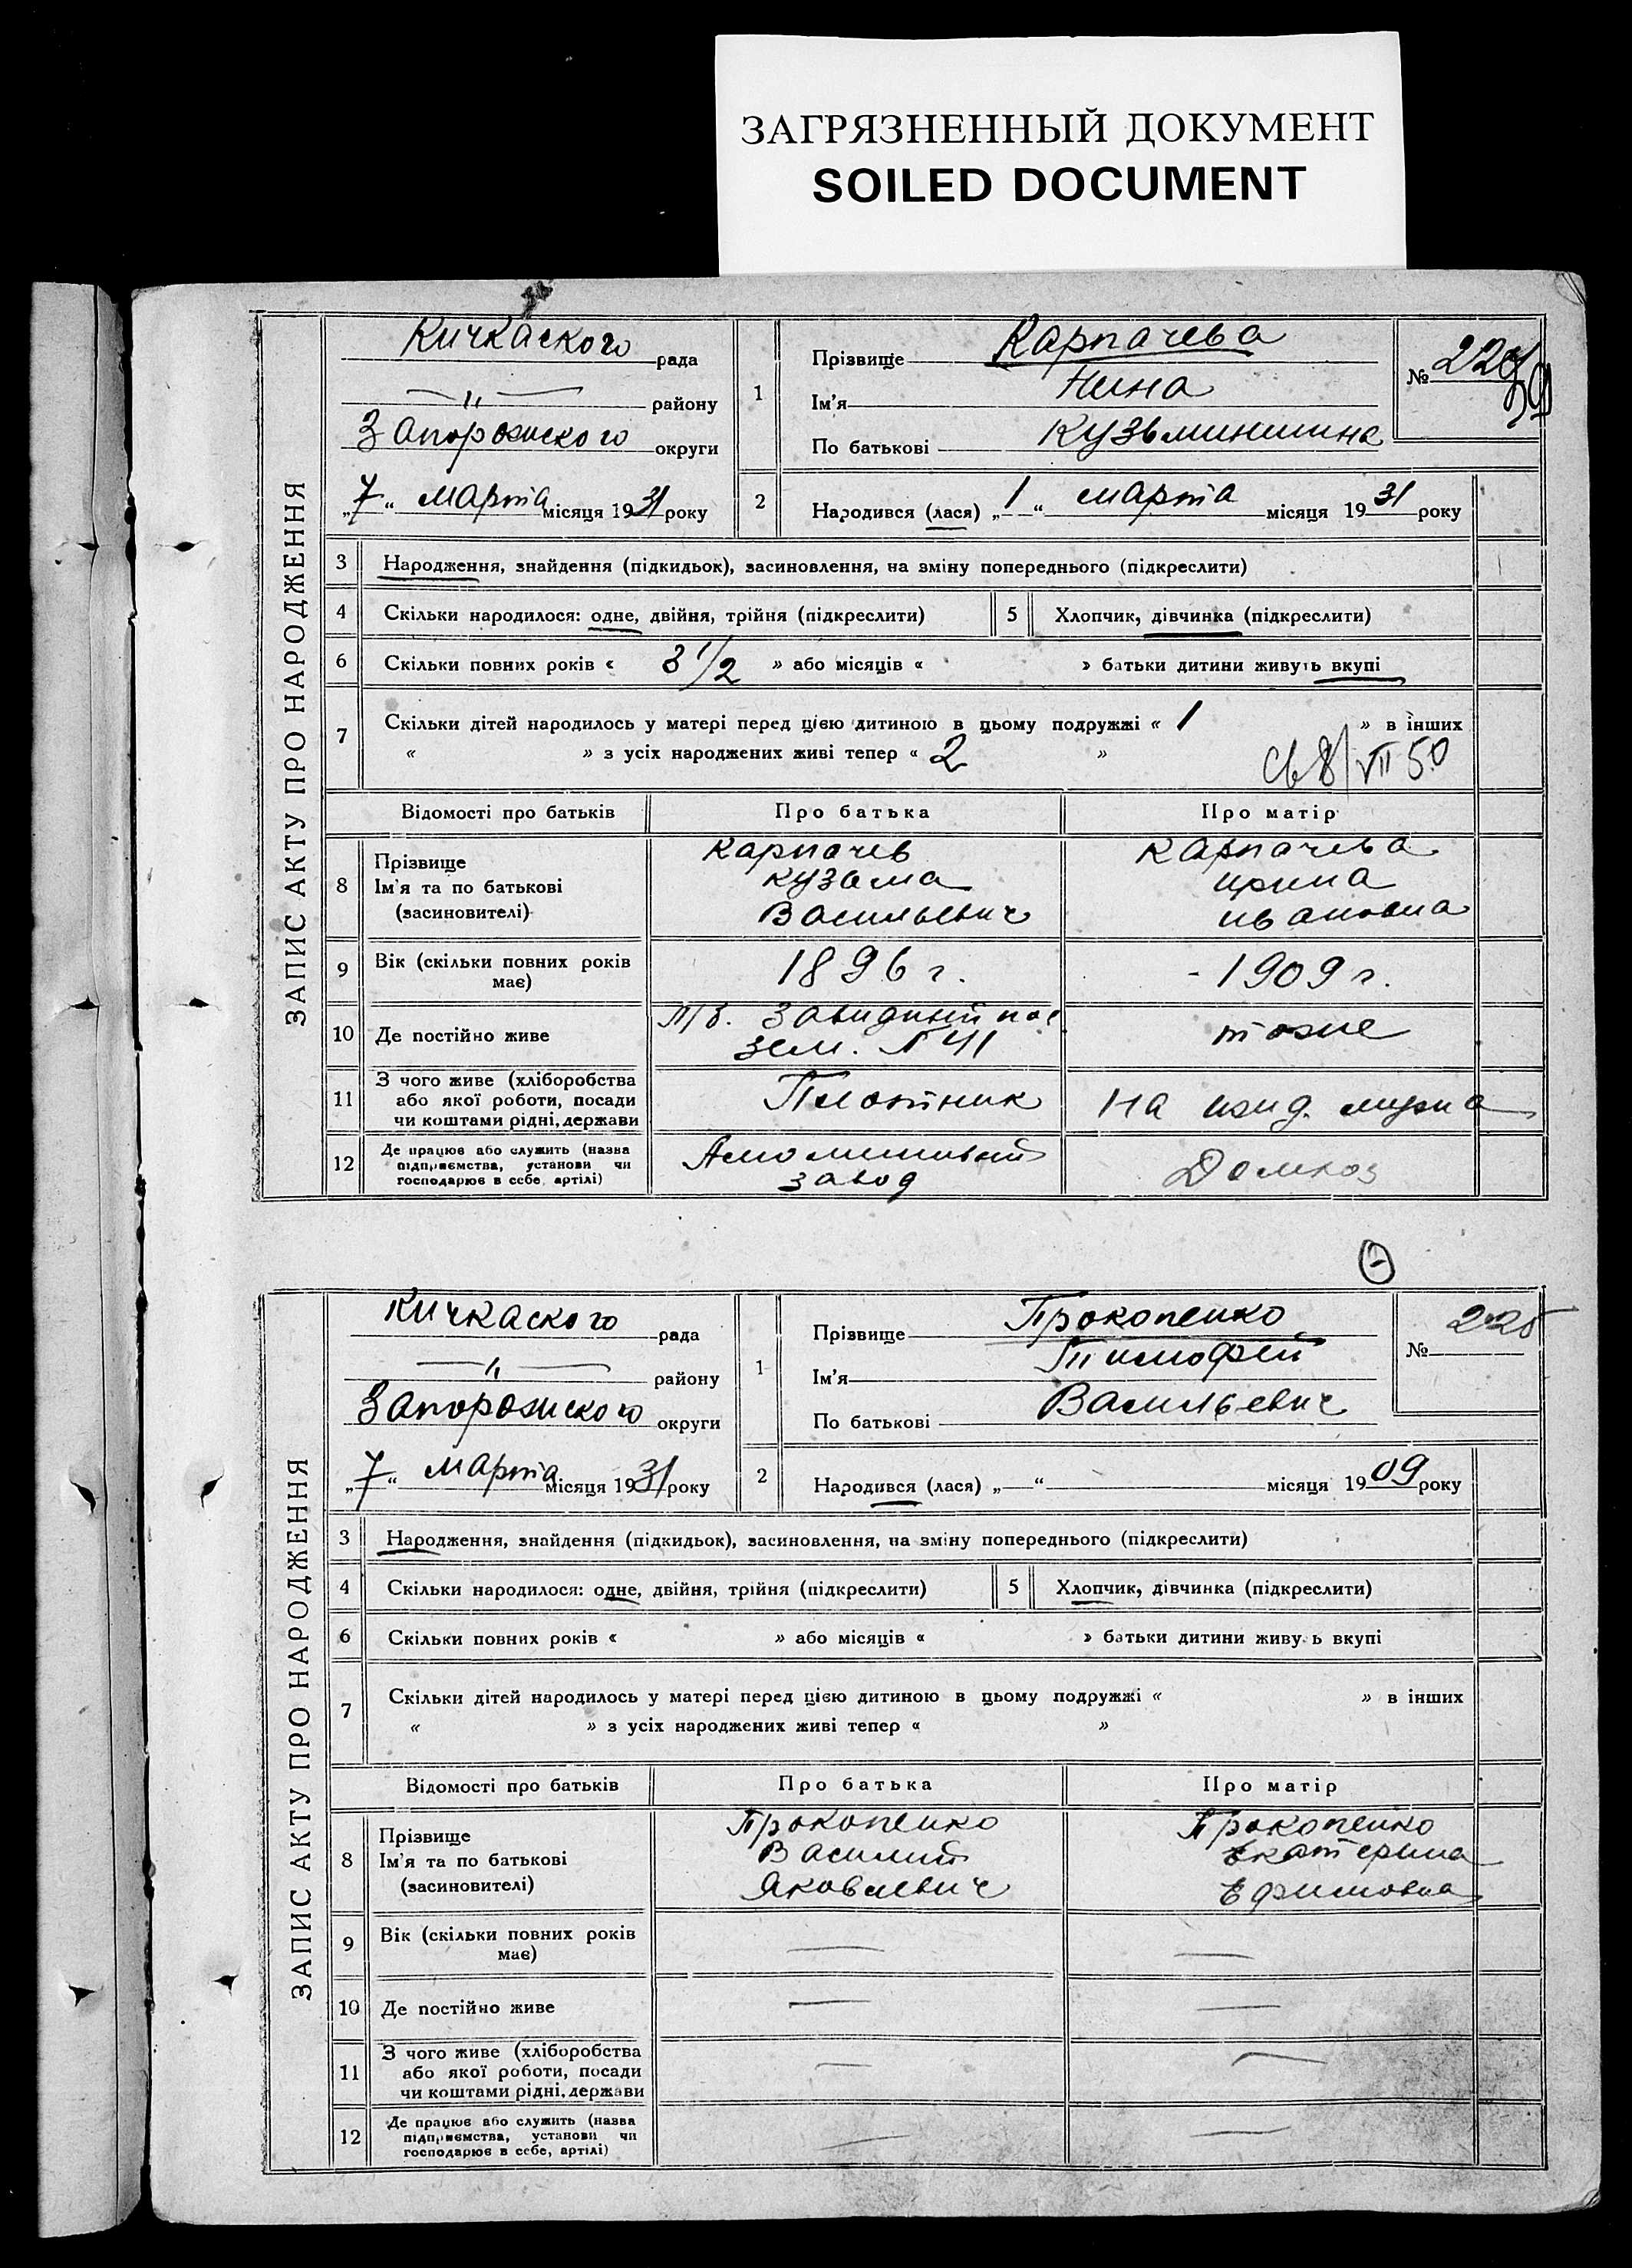 ЗАГРЯЗНЕННЫЙ ДОКУМЕНТ
SOILED DOCUMENT
ЗАПИС АКТУ ПРО НАРОДЖЕННЯ
Кичкаского рада
—„— району
Запорожского округи
„7“ марта місяця 1931 року
1 Прізвище Карпачева
Ім'я Нина
По батькові Кузьминишна
№ 224
2 Народився (лася) „1“ марта місяця 1931 року
3 Народження, знайдення (підкидьок), засиновлення, на зміну попереднього (підкреслити)
4 Скільки народилося: одне, двійня, трійня (підкреслити) 5 Хлопчик, дівчинка (підкреслити)
6 Скільки повних років « 3 1/2 » або місяців « » батьки дитини живуть вкупі
7 Скільки дітей народилось у матері перед цією дитиною в цьому подружжі « 1 » в інших
« » з усіх народжених живі тепер « 2 »
св 8/VII 50
Відомості про батьків Про батька Про матір
8 Прізвище Ім'я та по батькові (засиновителі)
Карпачев Кузьма Васильевич
Карпачева Ирина Ивановна
9 Вік (скільки повних років має) 1896 г. - 1909 г.
10 Де постійно живе
зем. №41
тоже
11 З чого живе (хліборобства або якої роботи, посади чи коштами рідні, держави
Плотник На ижд. мужа
12 Де працює або служить (назва підприємства, установи чи господарює в себе, артілі)
Алюминиевый завод
Домхоз
ЗАПИС АКТУ ПРО НАРОДЖЕННЯ
Кичкаского рада
—„— району
Запорожского округи
„7“ марта місяця 1931 року
1 Прізвище Прокопенко
Ім'я Тимофей
По батькові Васильевич
№ 225
2 Народився (лася) „—“ місяця 1909 року
3 Народження, знайдення (підкидьок), засиновлення, на зміну попереднього (підкреслити)
4 Скільки народилося: одне, двійня, трійня (підкреслити) 5 Хлопчик, дівчинка (підкреслити)
6 Скільки повних років « » або місяців « » батьки дитини живуть вкупі
7 Скільки дітей народилось у матері перед цією дитиною в цьому подружжі « » в інших
« » з усіх народжених живі тепер « »
Відомості про батьків Про батька Про матір
8 Прізвище Ім'я та по батькові (засиновителі)
Прокопенко Василий Яковлевич
Прокопенко Екатерина Ефимовна
9 Вік (скільки повних років має) — —
10 Де постійно живе — —
11 З чого живе (хліборобства або якої роботи, посади чи коштами рідні, держави — —
12 Де працює або служить (назва підприємства, установи чи господарює в себе, артілі) — —